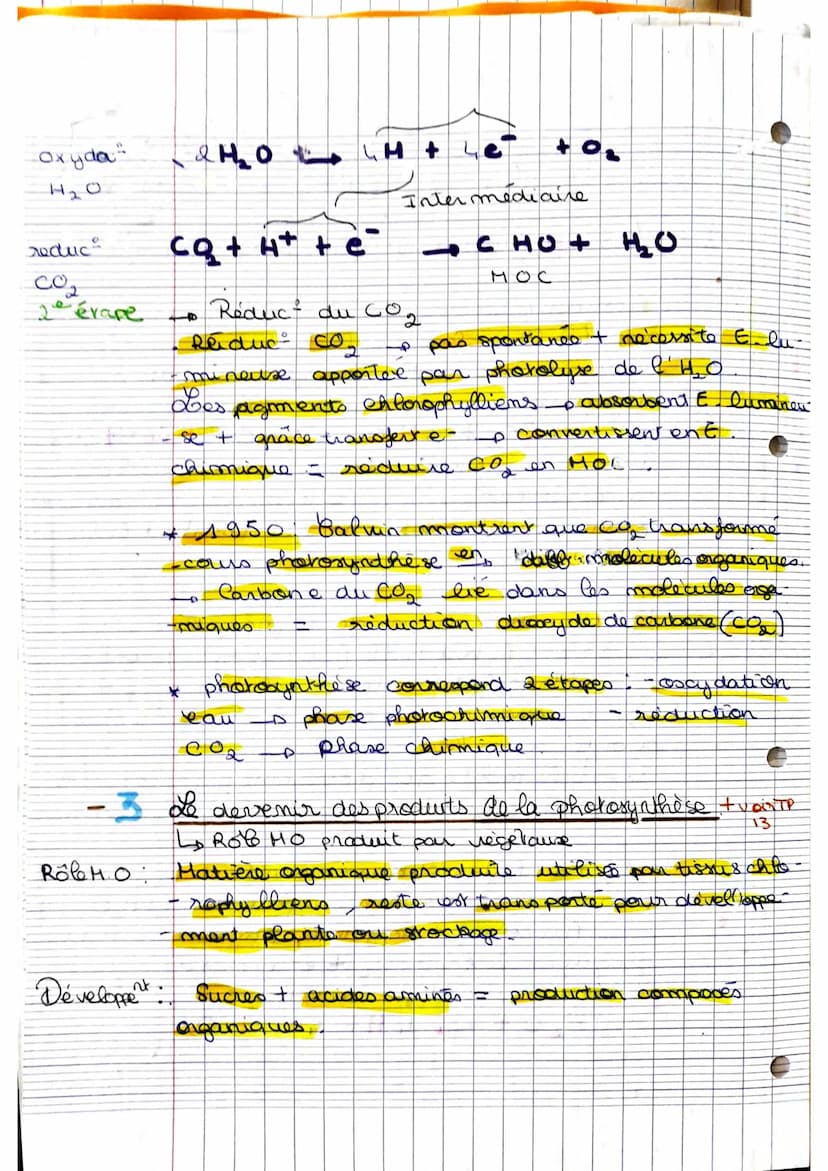 oxyda° 2H₂O → 4H + 4e⁻ + O₂
H₂O
Intermédiaire
reduc° CO₂ + H⁺ + e⁻ → C HO + H₂O
CO₂
MOC
2e étape → Réduc° du CO₂
Réduc° CO₂ → pas spontanée + nécessite E. lu-
mineuse apportée par photolyse de l'H₂O.
Les pigments chlorophylliens → absorbent E. lumineu
-se + grâce transfert e⁻ → convertissent en E.
chimique = réduire CO₂ en MO
* 1950 : Calvin montrent que CO₂ transformé
cours photosynthèse en diff molécules organiques.
→ Carbone du CO₂ lié dans les molécules orga
-niques = réduction dioxyde de carbone (CO₂)
* photosynthèse correspond 2 étapes : - oxydation
eau → phase photochimique - réduction
CO₂ → phase chimique
- 3 Le devenir des produits de la photosynthèse + voir TP
13
↳ Rôle MO produit par végétaux
Rôle M.O : Matière organique produite utilisé par tissus chlo
- rophylliens, reste est transporté pour dévelloppe-
- ment plante ou stockage.
Développe^nt : Sucres + acides aminés = production composés
organiques.